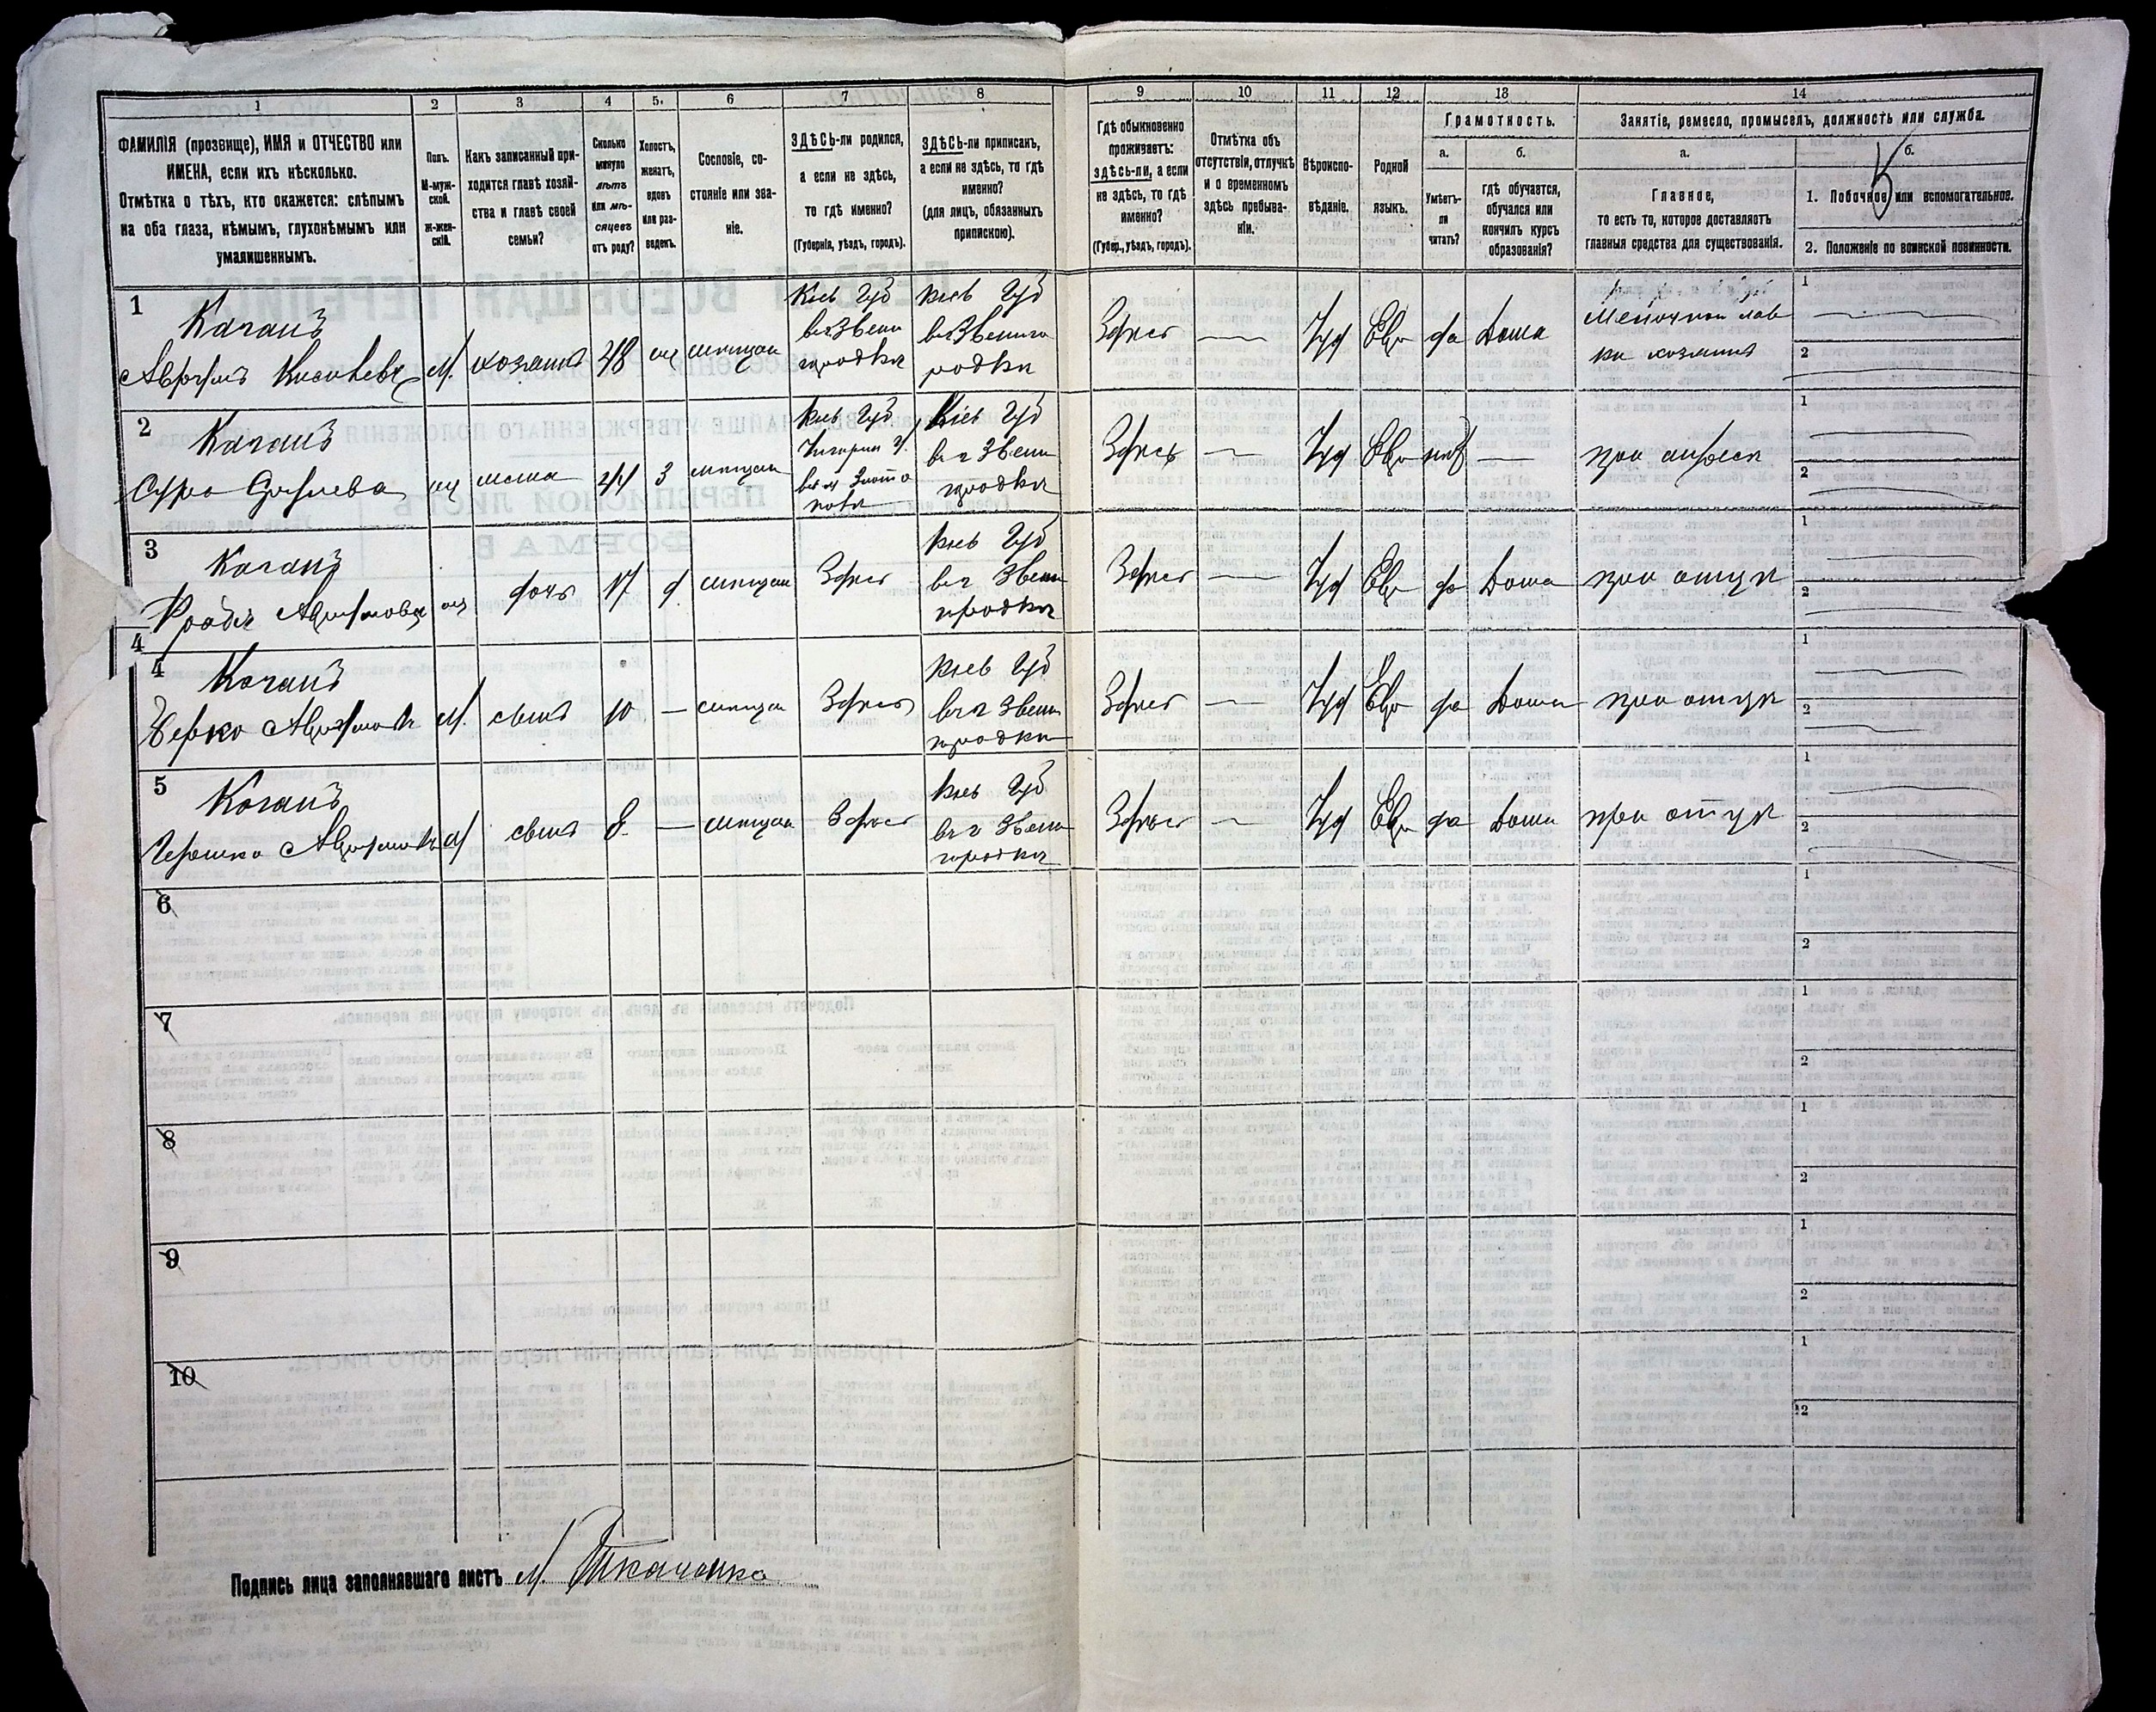 1 2 3 4 5. 6 7 8 9 10 11 12 13 14
ФАМИЛІЯ (прозвище), ИМЯ и ОТЧЕСТВО или
ИМЕНА, если ихъ нѣсколько.
Отмѣтка о тѣхъ, кто окажется: слѣпымъ
на оба глаза, нѣмымъ, глухонѣмымъ или
умалишеннымъ.
Полъ.
М-муж-
ской.
ж-жен-
скій.
Какъ записанный при-
ходится главѣ хозяй-
ства и главѣ своей
семьи?
Сколько
минуло
лѣтъ
или мѣ-
сяцевъ
отъ роду?
Холостъ,
женатъ,
вдовъ
или раз-
веденъ.
Сословіе, со-
стояніе или зва-
ніе.
ЗДѢСЬ-ли родился,
а если не здѣсь,
то гдѣ именно?
(Губернія, уѣздъ, городъ).
ЗДѢСЬ-ли приписанъ,
а если не здѣсь, то гдѣ
именно?
(для лицъ, обязанныхъ
припискою).
Гдѣ обыкновенно
проживаетъ:
здѣсь-ли, а если
не здѣсь, то гдѣ
именно?
(Губер., уѣздъ, городъ).
Отмѣтка объ
отсутствіи, отлучкѣ
и о временномъ
здѣсь пребыва-
ніи.
Вѣроиспо-
вѣданіе.
Родной
языкъ.
Грамотность.
а.
Умѣетъ-
ли
читать?
б.
гдѣ обучается,
обучался или
кончилъ курсъ
образованія?
Занятіе, ремесло, промыселъ, должность или служба.
а.
Главное,
то есть то, которое доставляетъ
главныя средства для существованія.
б.
1. Побочное или вспомогательное.
2. Положеніе по воинской повинности.
1
Каганъ
м. хозяинъ 48 ж мѣщан
Кіев Губ
в г Звени
городки
Кіев Губ
в г Звениго
родки
Здѣсь — Іуд Евр да Дома
Мелочной лав
ки хозяинъ
1
2
2
Каганъ
Сура
ж жена 44 з мѣщан
Кіев Губ
Кіев Губ
в г Звени
городки
Здѣсь — Іуд Евр нѣт —
при
1
2
3
Каганъ
ж дочь 17 д мѣщан Здѣсь
Кіев Губ
в г Звени
городки
Здѣсь — Іуд Евр да Дома при отцѣ
1
2
4
4
Каганъ
Берко
м. сынъ 10 — мѣщан Здѣсь
Кіев Губ
в г Звени
городки
Здѣсь — Іуд Евр да Дома при отцѣ
1
2
5
Каганъ
Гершко
м сынъ 8 — мѣщан Здѣсь
Кіев Губ
в г Звени
городки
Здѣсь — Іуд Евр да Дома при отцѣ
1
2
6
1
2
7
1
2
8
1
2
9
1
2
10
1
2
Подпись лица заполнявшаго листъ М. Ткаченко